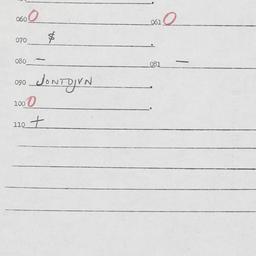 060 0 . 061 0
070 $ .
080 - 081 -
090 JONTOJVN .
100 0 .
110 +